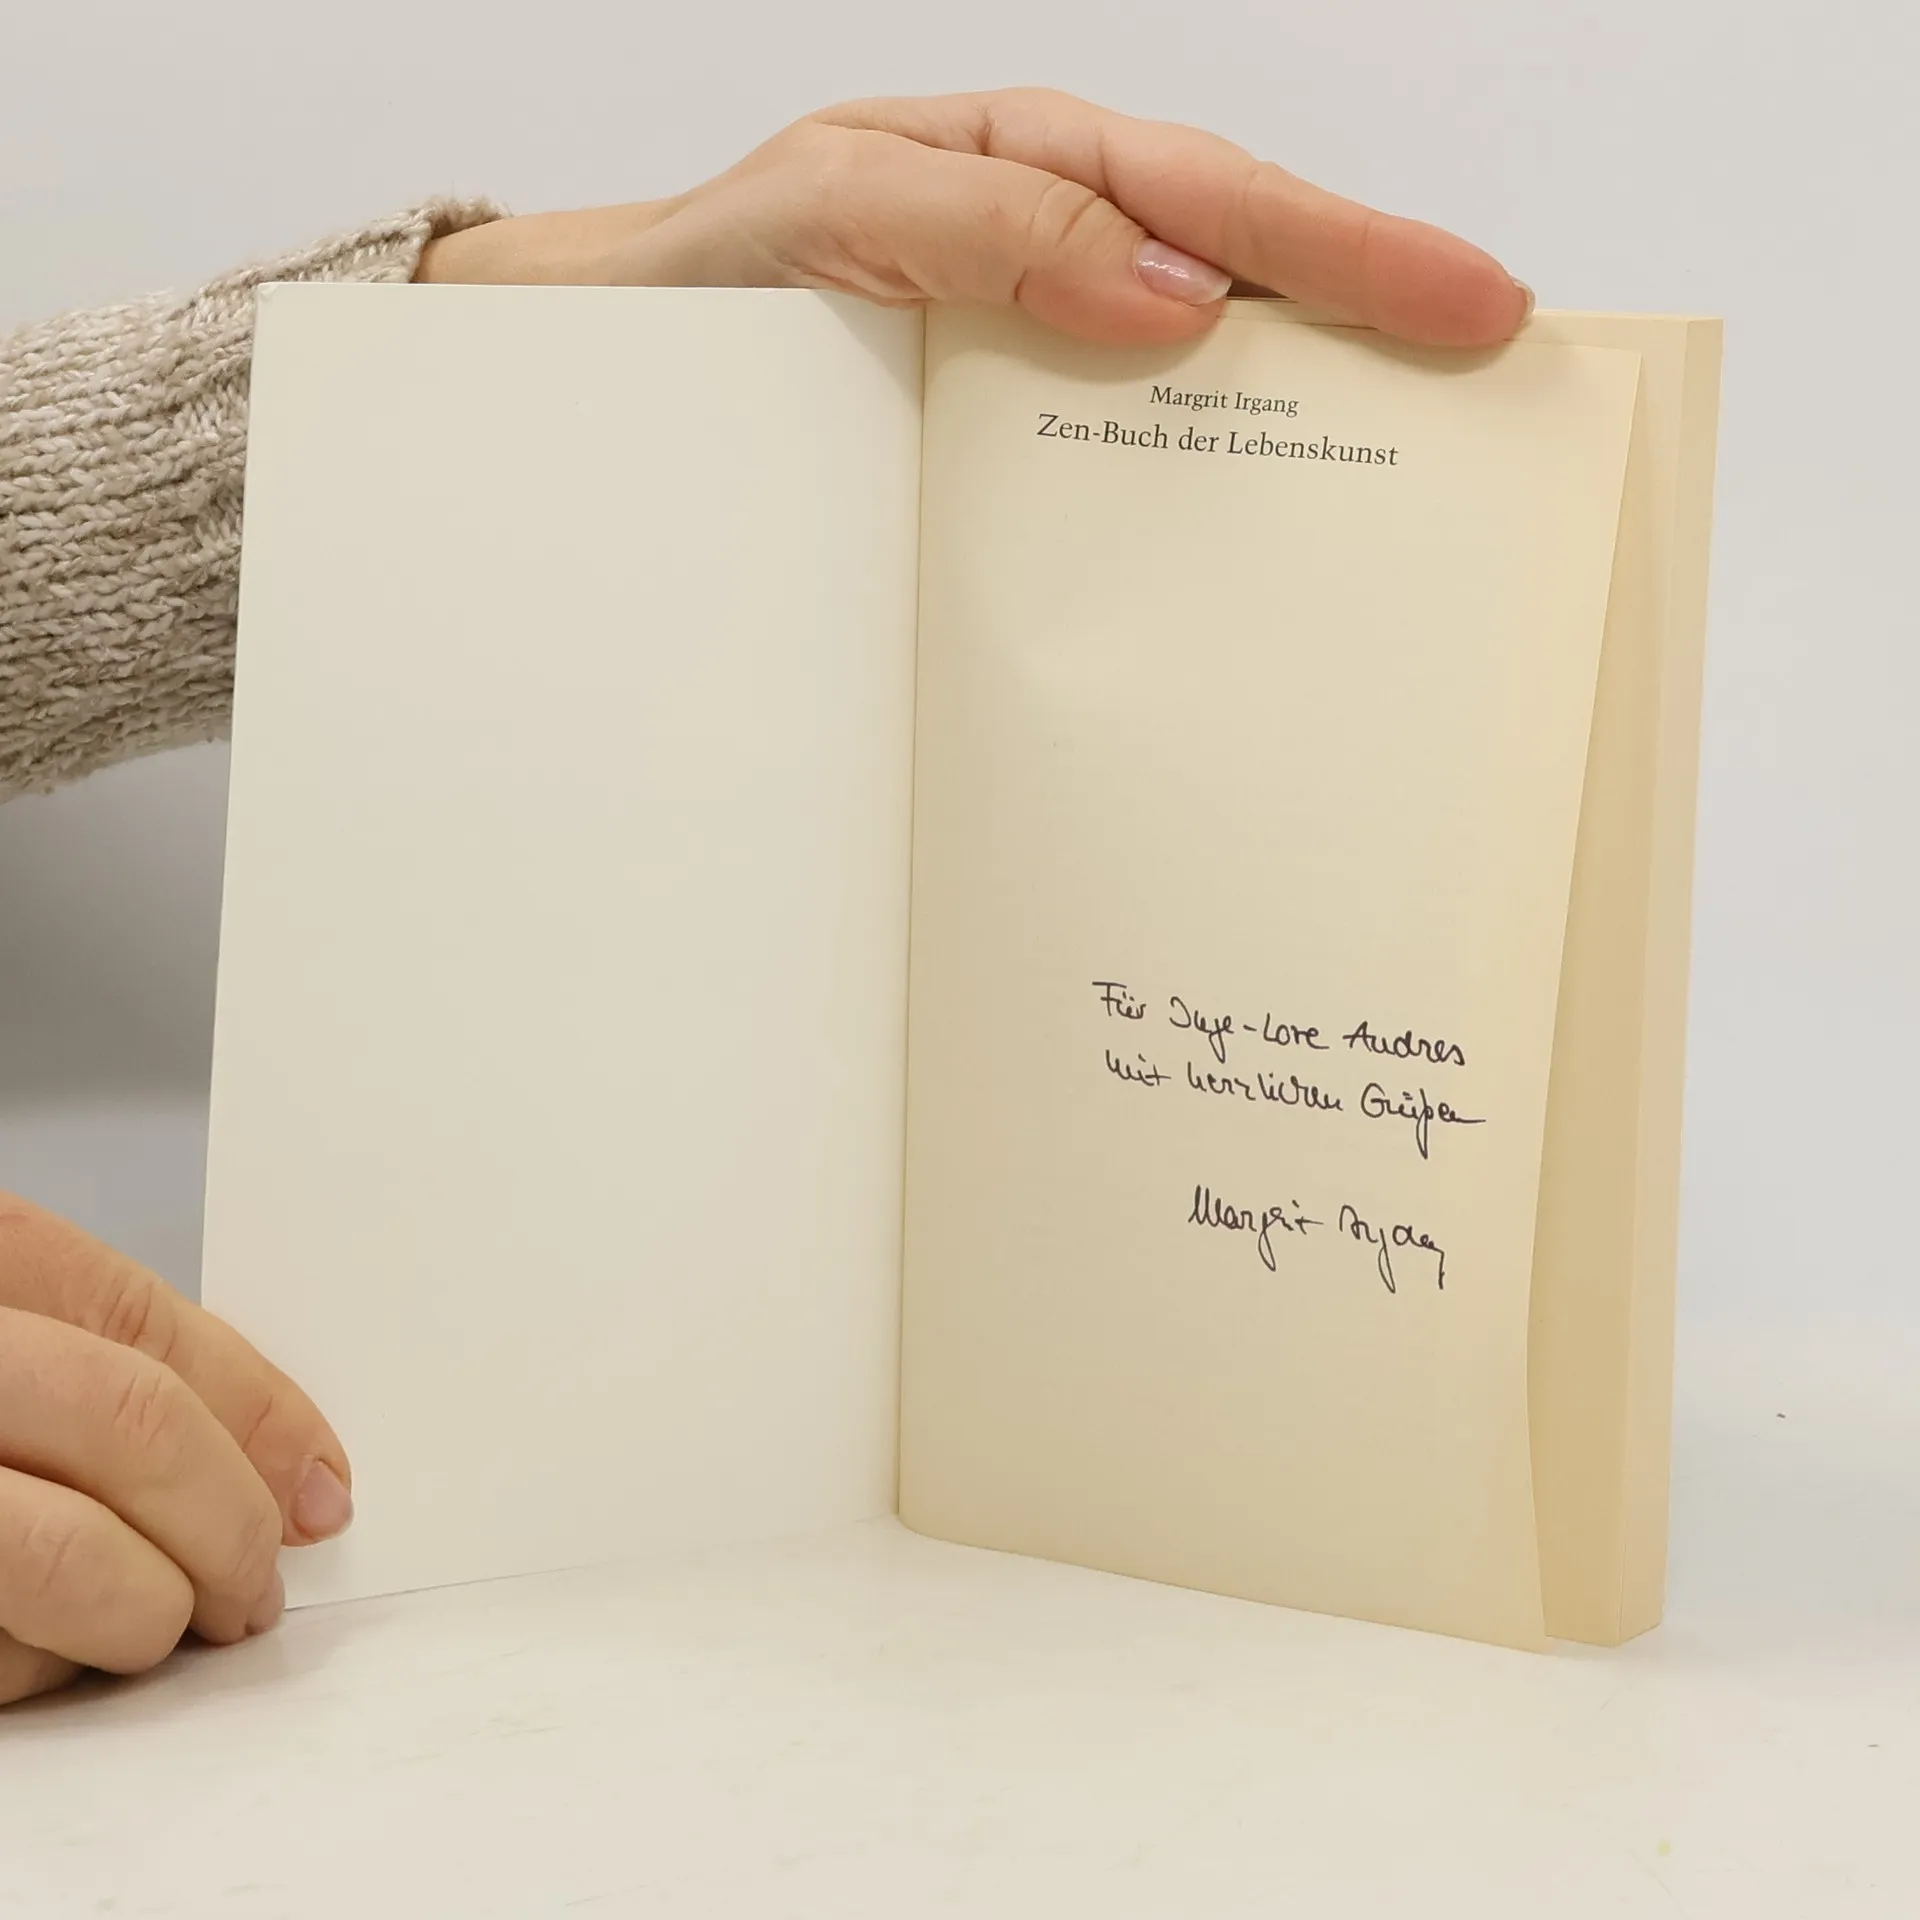 Margrit Irgang
Zen-Buch der Lebenskunst
Für Inge-Lore Andres
mit herzlichen Grüßen
Margrit Irgang